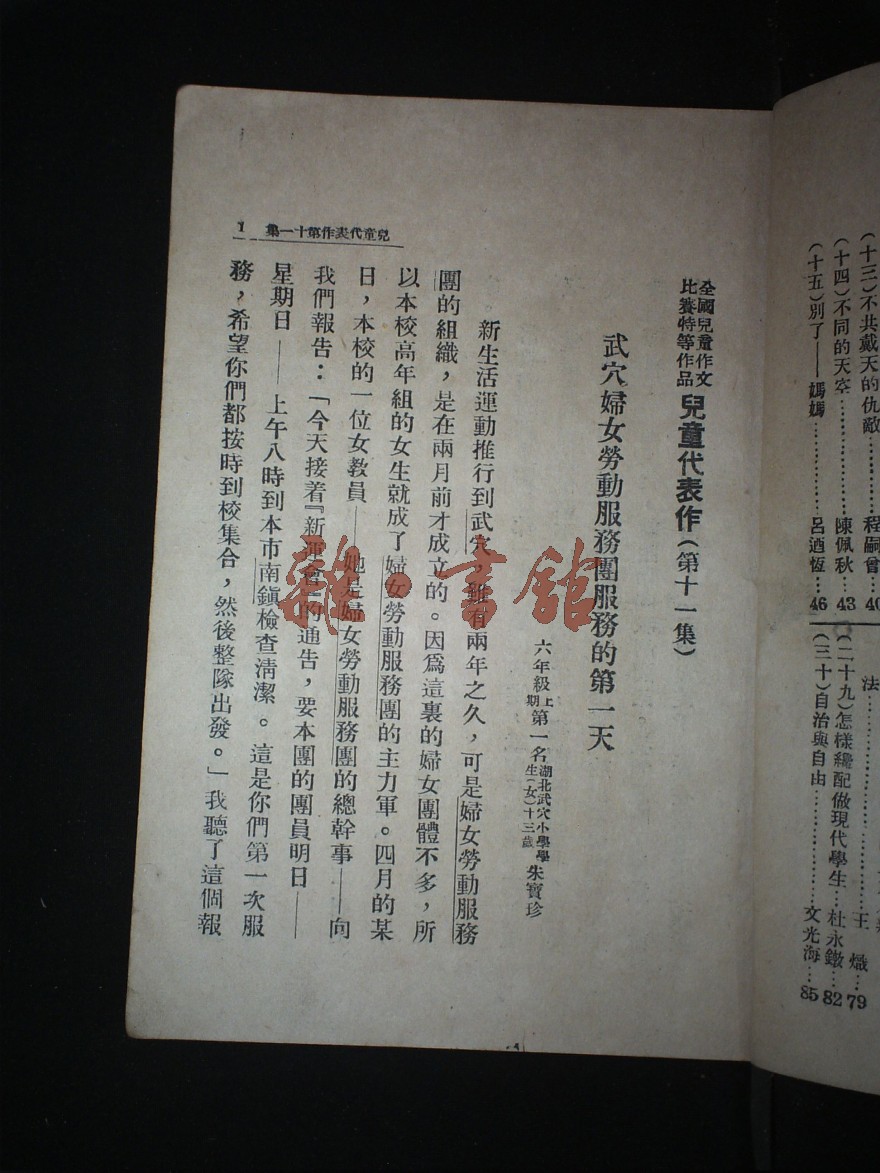 (十三)不共戴天的仇敵……………程嗣曾…40
(十四)不同的天空……………陳佩秋…43
(十五)別了——媽媽……………呂迺恆…46
法……………王熾…79
(二十九)怎樣纔配做現代學生…杜永鐓…82
(三十)自治與自由……………文光海…85
全國兒童作文
比賽特等作品
兒童代表作(第十一集)
武穴婦女勞動服務團服務的第一天
六年級上期第一名
湖北武穴小學學
生(女)十三歲
朱寶珍
新生活運動推行到武穴,雖有兩年之久,可是婦女勞動服務
團的組織,是在兩月前才成立的。因爲這裏的婦女團體不多,所
以本校高年組的女生就成了婦女勞動服務團的主力軍。四月的某
日,本校的一位女教員——她是婦女勞動服務團的總幹事——向
我們報告:「今天接着『新運會』的通告,要本團的團員明日——
星期日——上午八時到本市南鎭檢查淸潔。這是你們第一次服
務,希望你們都按時到校集合,然後整隊出發。」我聽了這個報
兒童代表作第十一集
1
雜·書館